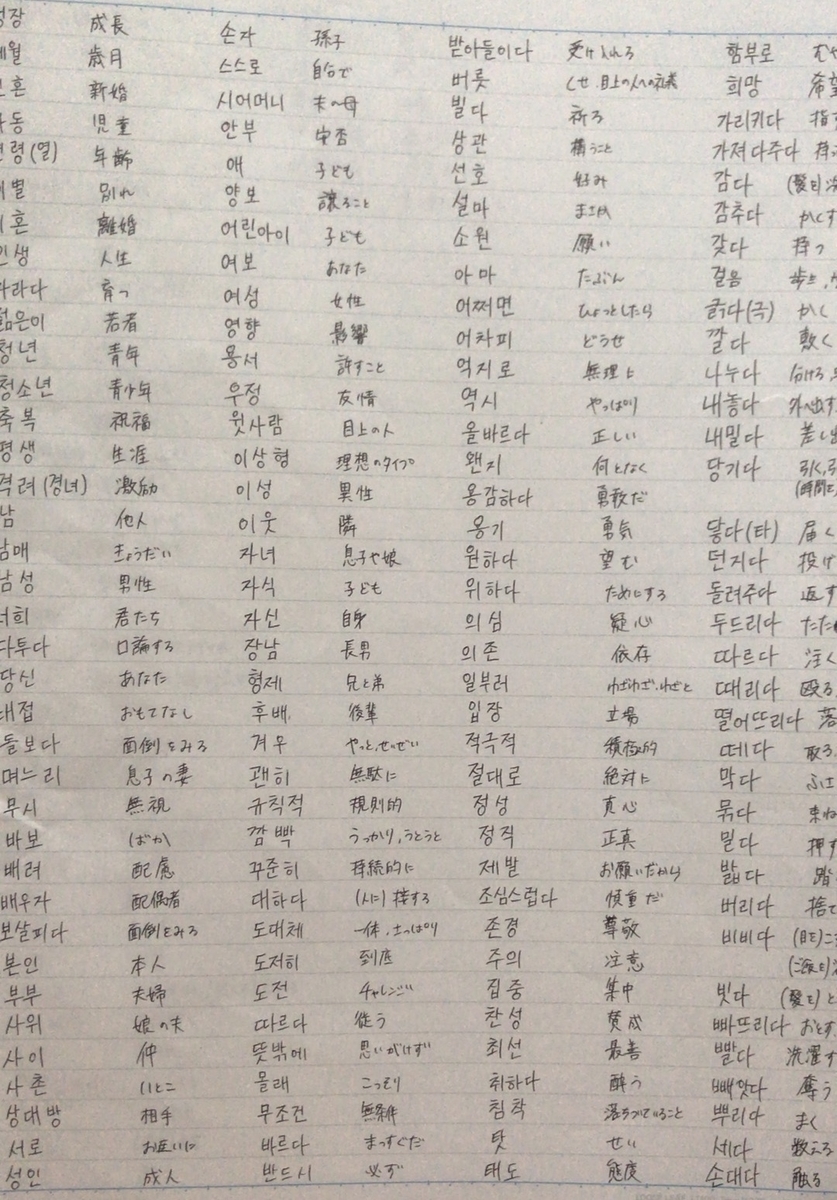 장 成長
월 歳月
혼 新婚
동 児童
령(열) 年齢
별 別れ
혼 離婚
인생 人生
라다 育つ
젊은이 若者
청년 青年
청소년 青少年
축복 祝福
평생 生涯
격려(경녀) 激励
남 他人
남매 きょうだい
남성 男性
너희 君たち
다투다 口論する
당신 あなた
대접 おもてなし
돌보다 面倒をみる
며느리 息子の妻
무시 無視
바보 ばか
배려 配慮
배우자 配偶者
보살피다 面倒をみる
본인 本人
부부 夫婦
사위 娘の夫
사이 仲
사촌 いとこ
상대방 相手
서로 お互いに
성인 成人
손자 孫子
스스로 自分で
시어머니 夫の母
안부 安否
애 子ども
양보 譲ること
어린아이 子ども
여보 あなた
여성 女性
영향 影響
용서 許すこと
우정 友情
윗사람 目上の人
이상형 理想のタイプ
이성 異性
이웃 隣
자녀 息子や娘
자식 子ども
자신 自身
장남 長男
형제 兄と弟
후배 後輩
겨우 やっと、せいぜい
괜히 無駄に
규칙적 規則的
깜빡 うっかり、うとうと
꾸준히 持続的に
대하다 (人に)接する
도대체 一体、さっぱり
도저히 到底
도전 チャレンジ
따르다 従う
뜻밖에 思いがけず
몰래 こっそり
무조건 無条件
바르다 まっすぐだ
반드시 必ず
받아들이다 受け入れる
버릇 くせ、目上の人への礼儀
빌다 祈る
상관 構うこと
선호 好み
설마 まさか
소원 願い
아마 たぶん
어쩌면 ひょっとしたら
어차피 どうせ
억지로 無理に
역시 やっぱり
올바르다 正しい
왠지 何となく
용감하다 勇敢だ
용기 勇気
원하다 望む
위하다 ためにする
의심 疑心
의존 依存
일부러 わざわざ、わざと
입장 立場
적극적 積極的
절대로 絶対に
정성 真心
정직 正真
제발 お願いだから
조심스럽다 慎重だ
존경 尊敬
주의 注意
집중 集中
찬성 賛成
최선 最善
취하다 酔う
침착 落ちついていること
탓 せい
태도 態度
함부로 むや
희망 希望
가리키다 指
가져다주다 持っ
감다 (髪を)洗
감추다 かくす
갖다 持つ
걸음 歩き、
긁다(극) かく
깔다 敷く
나누다 分ける、
내놓다 外へ出す
내밀다 差し出
당기다 引く、引
(時間を
닿다(타) 届く
던지다 投げ
돌려주다 返す
두드리다 たた
따르다 注ぐ
때리다 殴る
떨어뜨리다 落
떼다 取る
막다 ふさ
묶다 束ね
밀다 押す
밟다 踏
버리다 捨て
비비다 (目を)こ
(ご飯を)
빗다 (髪を)と
빠뜨리다 おとす
빨다 洗濯す
빼앗다 奪う
뿌리다 まく
세다 数える
손대다 触る